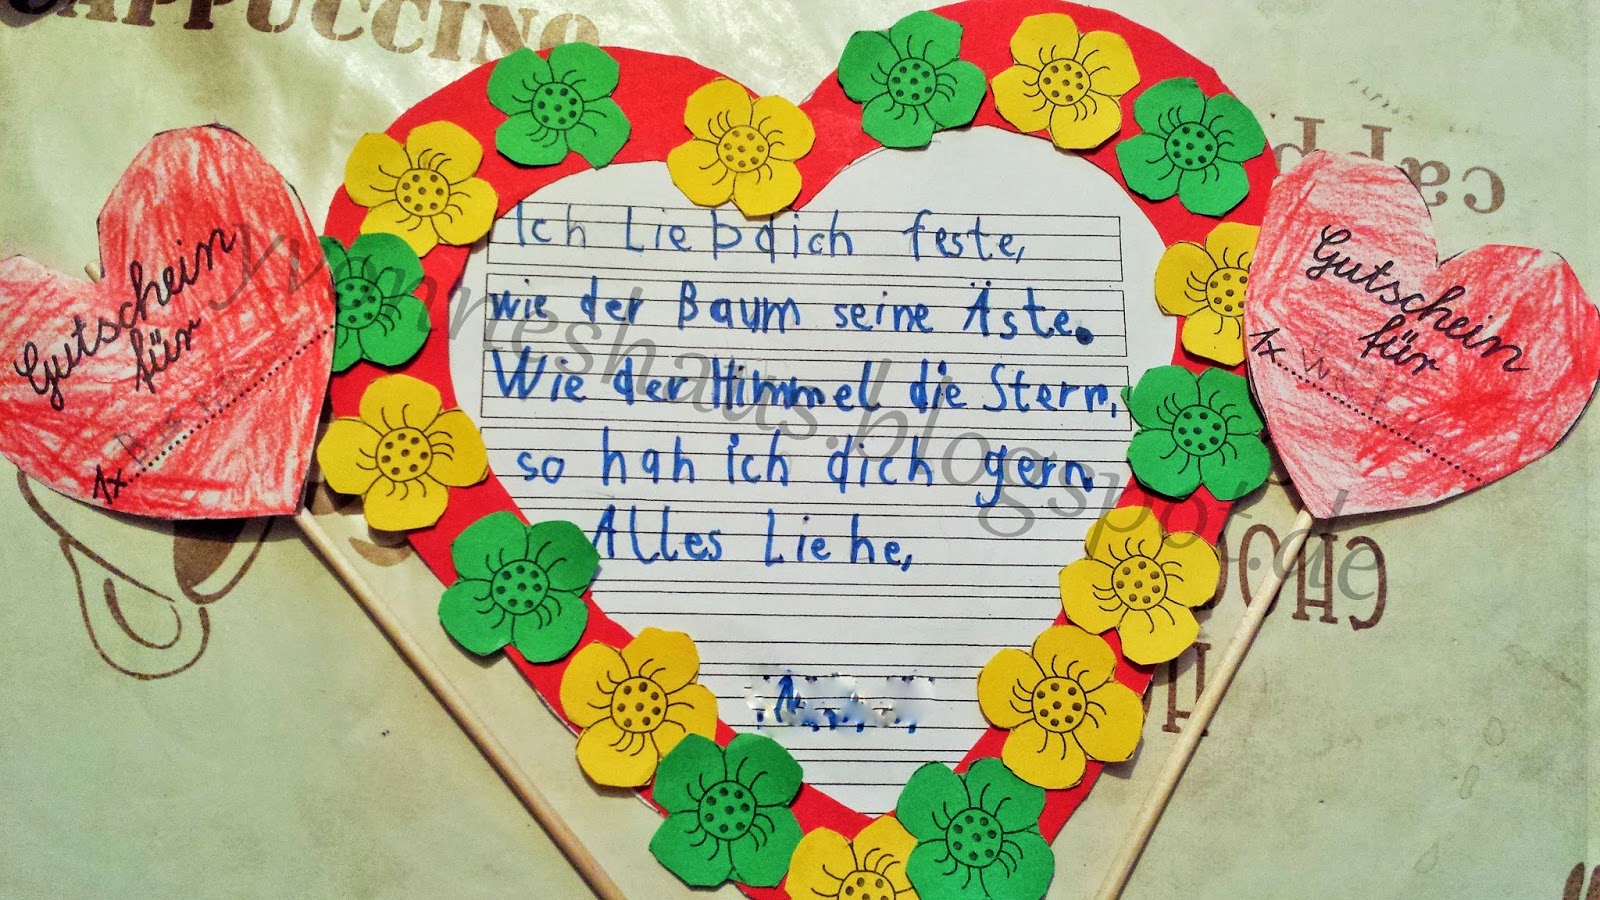 CAPPUCCINO
Ich Liebdich feste,
wie der Baum seine Äste.
Wie der Himmel die Stern,
so hab ich dich gern.
Alles Liebe,
Gutschein
für
1x
Gutschein
für
1x
yvonneshaus.blogspot.de